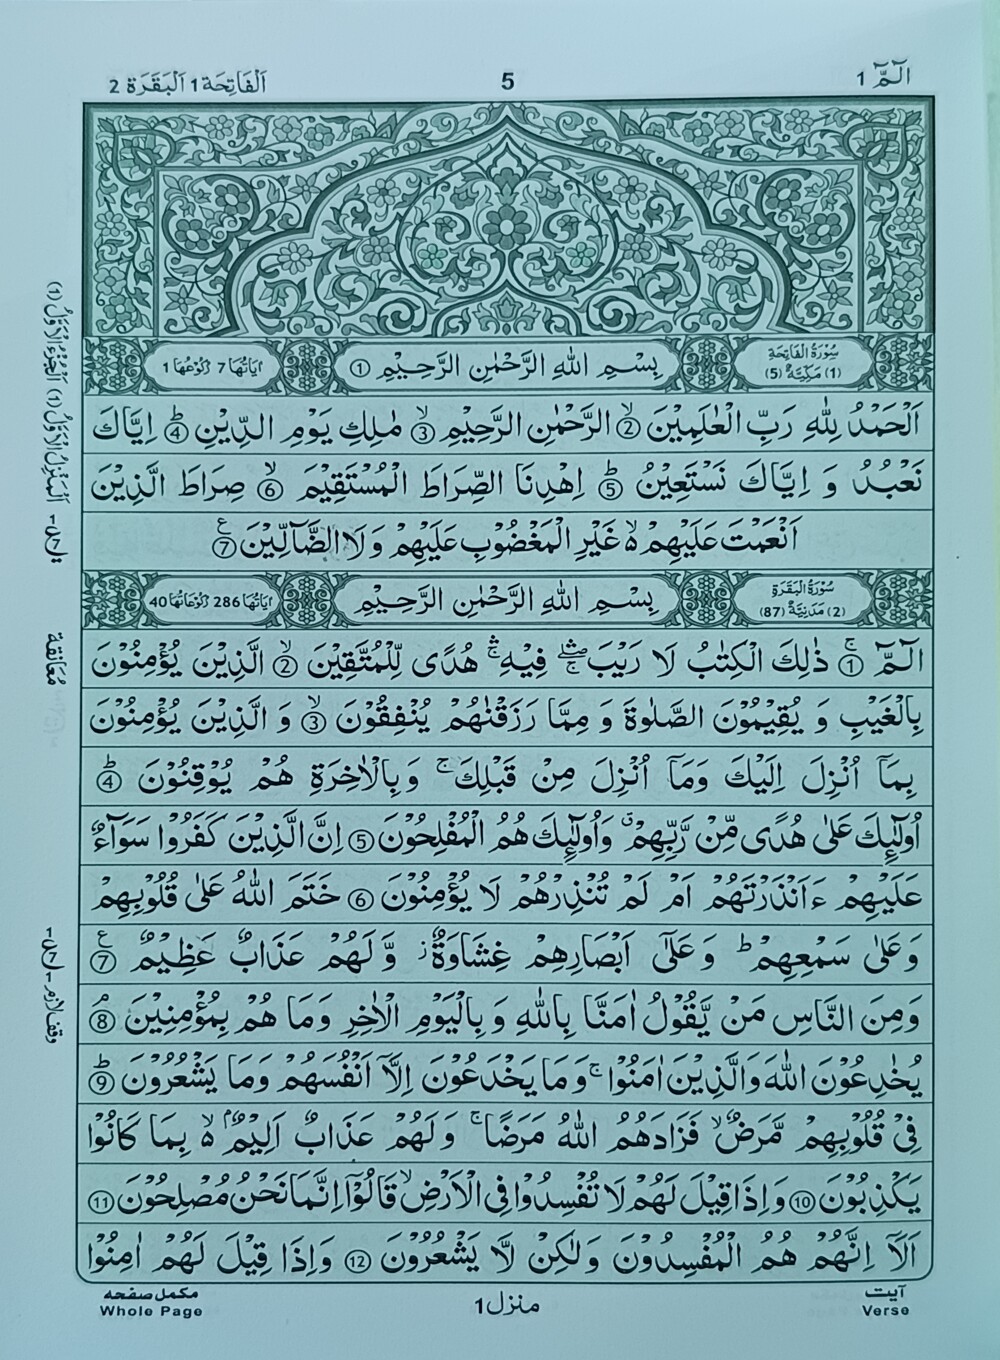 الٓمّٓ 1
5
اَلْفَاتِحَة 1 اَلْبَقَرَة 2
سُوْرَةُ الْفَاتِحَةِ
(1) مَكِّيَّةٌ (5)
بِسْمِ اللّٰهِ الرَّحْمٰنِ الرَّحِيْمِ ①
اٰيَاتُهَا 7 رُكُوْعُهَا 1
اَلْحَمْدُ لِلّٰهِ رَبِّ الْعٰلَمِيْنَ ②ۙ الرَّحْمٰنِ الرَّحِيْمِ ③ۙ مٰلِكِ يَوْمِ الدِّيْنِ ④ؕ اِيَّاكَ
نَعْبُدُ وَ اِيَّاكَ نَسْتَعِيْنُ ⑤ؕ اِهْدِنَا الصِّرَاطَ الْمُسْتَقِيْمَ ⑥ۙ صِرَاطَ الَّذِيْنَ
اَنْعَمْتَ عَلَيْهِمْ ۙ۬ غَيْرِ الْمَغْضُوْبِ عَلَيْهِمْ وَ لَا الضَّآلِّيْنَ ⑦ع
سُوْرَةُ الْبَقَرَةِ
(2) مَدَنِيَّةٌ (87)
بِسْمِ اللّٰهِ الرَّحْمٰنِ الرَّحِيْمِ
اٰيَاتُهَا 286 رُكُوْعَاتُهَا 40
الٓمّٓ ①ۚ ذٰلِكَ الْكِتٰبُ لَا رَيْبَ ۛۖ فِيْهِ ۛۚ هُدًى لِّلْمُتَّقِيْنَ ②ۙ الَّذِيْنَ يُؤْمِنُوْنَ
بِالْغَيْبِ وَ يُقِيْمُوْنَ الصَّلٰوةَ وَ مِمَّا رَزَقْنٰهُمْ يُنْفِقُوْنَ ③ۙ وَ الَّذِيْنَ يُؤْمِنُوْنَ
بِمَآ اُنْزِلَ اِلَيْكَ وَمَآ اُنْزِلَ مِنْ قَبْلِكَ ۚ وَ بِالْاٰخِرَةِ هُمْ يُوْقِنُوْنَ ④ؕ
اُولٰٓئِكَ عَلٰى هُدًى مِّنْ رَّبِّهِمْ ۗ وَاُولٰٓئِكَ هُمُ الْمُفْلِحُوْنَ ⑤ اِنَّ الَّذِيْنَ كَفَرُوْا سَوَآءٌ
عَلَيْهِمْ ءَاَنْذَرْتَهُمْ اَمْ لَمْ تُنْذِرْهُمْ لَا يُؤْمِنُوْنَ ⑥ خَتَمَ اللّٰهُ عَلٰى قُلُوْبِهِمْ
وَعَلٰى سَمْعِهِمْ ؕ وَعَلٰٓى اَبْصَارِهِمْ غِشَاوَةٌ ؗ وَّ لَهُمْ عَذَابٌ عَظِيْمٌ ⑦ع
وَمِنَ النَّاسِ مَنْ يَّقُوْلُ اٰمَنَّا بِاللّٰهِ وَ بِالْيَوْمِ الْاٰخِرِ وَمَا هُمْ بِمُؤْمِنِيْنَ ⑧ۘ
يُخٰدِعُوْنَ اللّٰهَ وَالَّذِيْنَ اٰمَنُوْا ۚ وَمَا يَخْدَعُوْنَ اِلَّآ اَنْفُسَهُمْ وَمَا يَشْعُرُوْنَ ⑨ؕ
فِيْ قُلُوْبِهِمْ مَّرَضٌ ۙ فَزَادَهُمُ اللّٰهُ مَرَضًا ۚ وَلَهُمْ عَذَابٌ اَلِيْمٌ ۢ ۙ۬ بِمَا كَانُوْا
يَكْذِبُوْنَ ⑩ وَاِذَا قِيْلَ لَهُمْ لَا تُفْسِدُوْا فِى الْاَرْضِ ۙ قَالُوْٓا اِنَّمَا نَحْنُ مُصْلِحُوْنَ ⑪
اَلَآ اِنَّهُمْ هُمُ الْمُفْسِدُوْنَ وَلٰكِنْ لَّا يَشْعُرُوْنَ ⑫ وَاِذَا قِيْلَ لَهُمْ اٰمِنُوْا
اَلْمَنْزِلُ الْاَوَّلُ (1) اَلْجُزْءُ الْاَوَّلُ (1)
مُعَانَقَة
وقف لازم
آیت
Verse
منزل 1
مکمل صفحہ
Whole Page